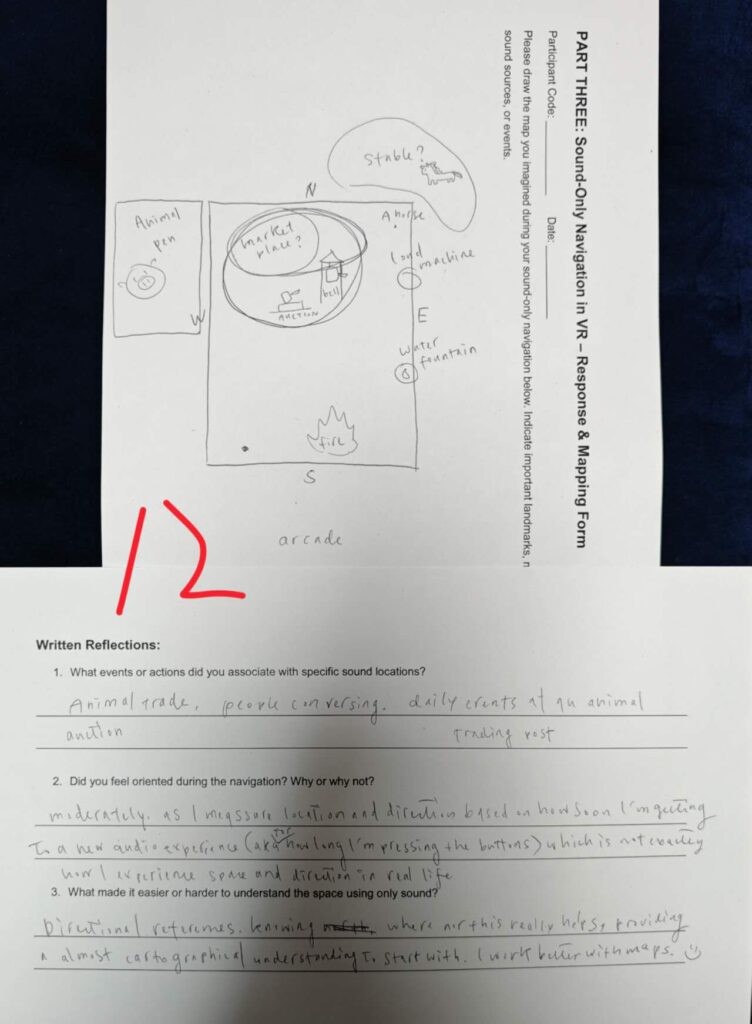 PART THREE: Sound-Only Navigation in VR – Response & Mapping Form
Participant Code: __________ Date: __________
Please draw the map you imagined during your sound-only navigation below. Indicate important landmarks, n
sound sources, or events.
stable?
N
A horse
Animal
pen
market
place?
loud
machine
bell
AUCTION
W
E
water
fountain
fire
S
arcade
12
Written Reflections:
1. What events or actions did you associate with specific sound locations?
Animal trade, people conversing. daily events at an animal
auction trading post
2. Did you feel oriented during the navigation? Why or why not?
moderately. as I meassure location and direction based on how soon I'm getting
to a new audio experience (aka for how long I'm pressing the buttons) which is not exactly
how I experience space and direction in real life
3. What made it easier or harder to understand the space using only sound?
Directional references. knowing where north is really helps, providing
a almost cartographical understanding to start with. I work better with maps.